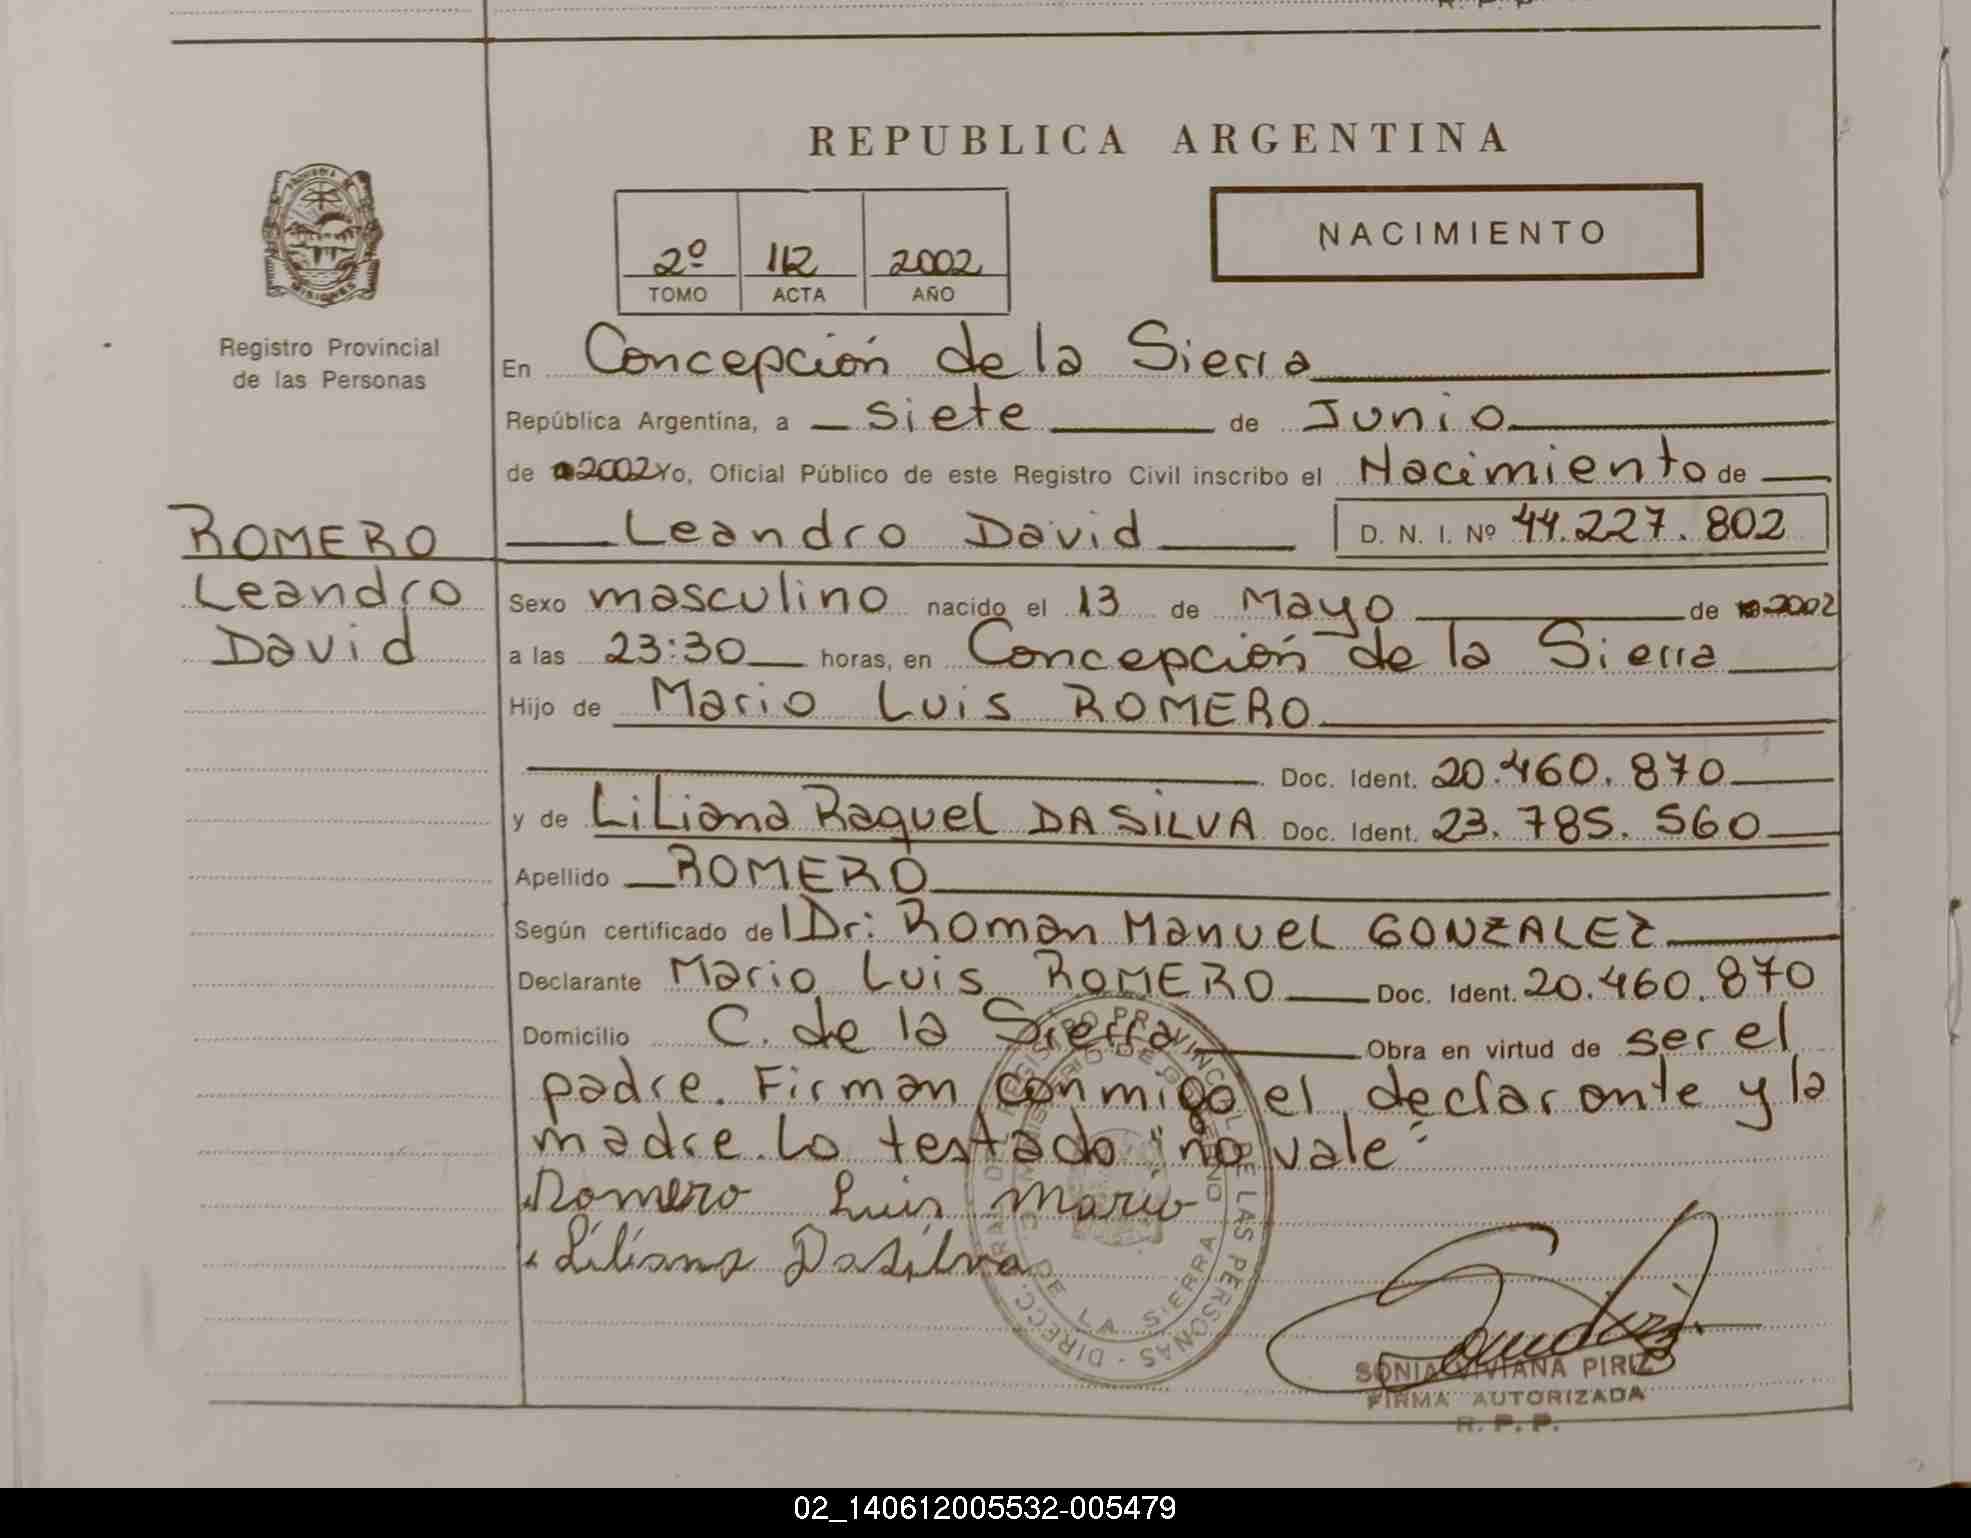 REPUBLICA ARGENTINA
NACIMIENTO
2º 112 2002
TOMO ACTA AÑO
MISIONES
Registro Provincial
de las Personas
En Concepción de la Sierra
República Argentina, a siete de Junio
de 2002 Yo, Oficial Público de este Registro Civil inscribo el Nacimiento de
ROMERO
Leandro
David
Leandro David D. N. I. Nº 44.227.802
Sexo masculino nacido el 13 de Mayo de 2002
a las 23:30 horas, en Concepción de la Sierra
Hijo de Mario Luis ROMERO
Doc. Ident. 20.460.870
y de Liliana Raquel DA SILVA Doc. Ident. 23.785.560
Apellido ROMERO
Según certificado de Dr: Roman Manuel GONZALEZ
Declarante Mario Luis ROMERO Doc. Ident. 20.460.870
Domicilio C. de la Sierra Obra en virtud de ser el
padre. Firman conmigo el declarante y la
madre. Lo testado "no vale"
Romero Luis Mario
Liliana Dasilva
DIRECC. GRAL. DEL REGISTRO PROVINCIAL DE LAS PERSONAS
MINISTERIO DE GOBIERNO
C. DE LA SIERRA
SONIA VIVIANA PIRIZ
FIRMA AUTORIZADA
R. P. P.
02_140612005532-005479